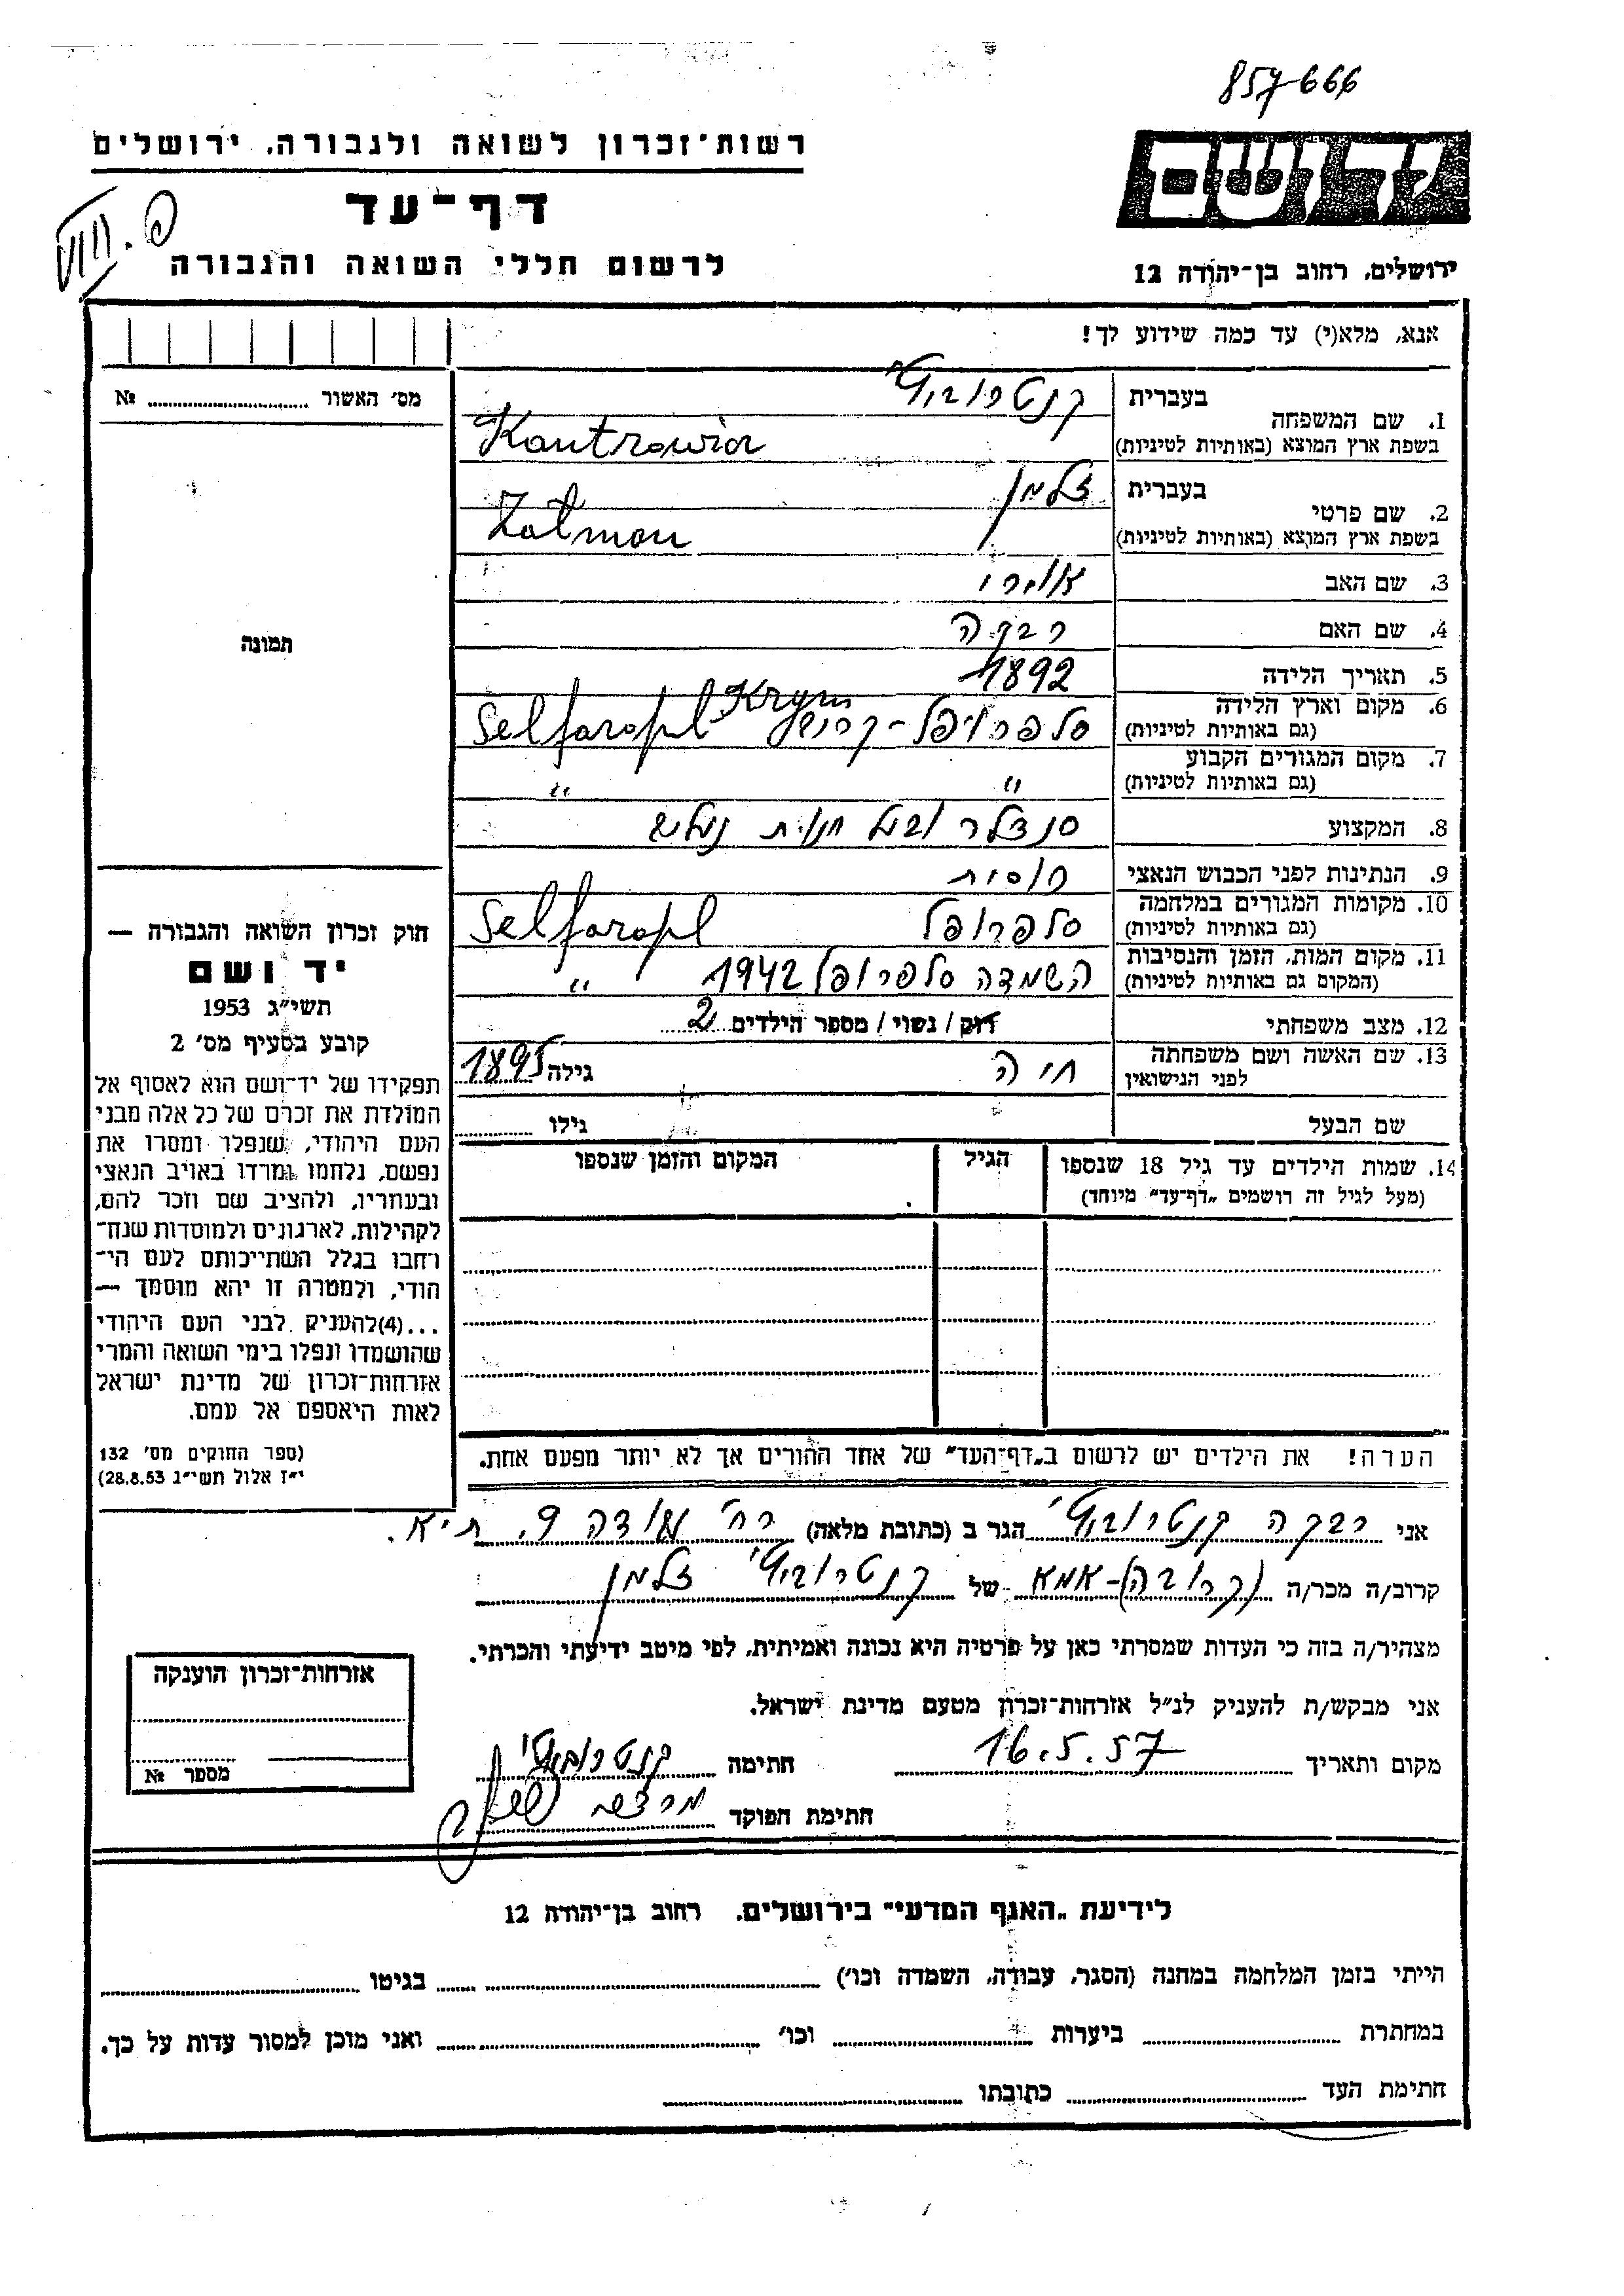 857666
רשות־זכרון לשואה ולגבורה, ירושלים
יד ושם
דף־עד
לרשום חללי השואה והגבורה
ירושלים, רחוב בן־יהודה 12
אנא, מלא(י) עד כמה שידוע לך!
מס׳ האשור ........ №
1. שם המשפחה
בעברית קנטרוביץ׳
בשפת ארץ המוצא (באותיות לטיניות) Kantrowicz
2. שם פרטי
בעברית זלמן
בשפת ארץ המוצא (באותיות לטיניות) Zalman
3. שם האב
4. שם האם רבקה
5. תאריך הלידה 1892
6. מקום וארץ הלידה
(גם באותיות לטיניות) סלפרופל - קרים Selfaropl Krym
7. מקום המגורים הקבוע
(גם באותיות לטיניות) " "
8. המקצוע סנדלר ובעל חנות
9. הנתינות לפני הכבוש הנאצי רוסית
10. מקומות המגורים במלחמה
(גם באותיות לטיניות) סלפרופל Selfaropl
11. מקום המות, הזמן והנסיבות
(המקום גם באותיות לטיניות) השמדה סלפרופל 1942 "
12. מצב משפחתי רוק / נשוי / מספר הילדים 2
13. שם האשה ושם משפחתה
לפני הנישואין חיה גילה 1895
שם הבעל גילו ........
14. שמות הילדים עד גיל 18 שנספו
(מעל לגיל זה רושמים „דף־עד״ מיוחד)
הגיל
המקום והזמן שנספו
הערה! את הילדים יש לרשום ב„דף־העד״ של אחד ההורים אך לא יותר מפעם אחת.
תמונה
חוק זכרון השואה והגבורה —
יד ושם
תשי״ג 1953
קובע בסעיף מס׳ 2
תפקידו של יד־ושם הוא לאסוף אל
המולדת את זכרם של כל אלה מבני
העם היהודי, שנפלו ומסרו את
נפשם, נלחמו ומרדו באויב הנאצי
ובעוזריו, ולהציב שם וזכר להם,
לקהילות, לארגונים ולמוסדות שנח־
רחבו בגלל השתייכותם לעם הי־
הודי, ולמטרה זו יהא מוסמך —
...(4)להעניק לבני העם היהודי
שהושמדו ונפלו בימי השואה והמרי
אזרחות־זכרון של מדינת ישראל
לאות היאספם אל עמם.
(ספר החוקים מס׳ 132
י״ז אלול תשי״ג 28.8.53)
אני רבקה קנטרוביץ׳ הגר ב (כתובת מלאה) רח׳ 9. ת״א.
קרוב/ה מכר/ה (קרובה)-אמא של קנטרוביץ׳ זלמן
מצהיר/ה בזה כי העדות שמסרתי כאן על פרטיה היא נכונה ואמיתית, לפי מיטב ידיעתי והכרתי.
אני מבקש/ת להעניק לנ״ל אזרחות־זכרון מטעם מדינת ישראל.
מקום ותאריך 16.5.57 חתימה קנטרוביץ׳
חתימת הפוקד
אזרחות־זכרון הוענקה
מספר №
לידיעת „האגף המדעי״ בירושלים, רחוב בן־יהודה 12
הייתי בזמן המלחמה במחנה (הסגר, עבודה, השמדה וכו׳) ........ בגיטו ........
במחתרת ........ ביערות ........ וכו׳ ........ ואני מוכן למסור עדות על כך.
חתימת העד ........ כתובתו ........